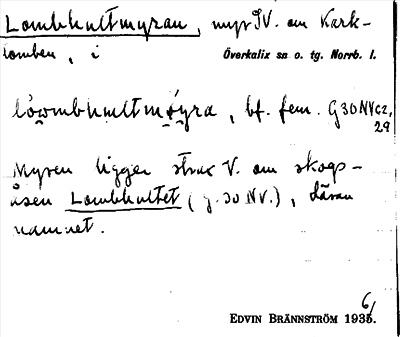 Lombhultmyran, myr SV. om Kark-
lomben, i Överkalix sn o. tg. Norrb. l.
lòwmbhultmøyra, bf. fem. G30NVc2,
29
Myren ligger strax V. om skogs-
åsen Lombhultet (g. 30 NV.), därav
namnet.
6/
EDVIN BRÄNNSTRÖM 1935.